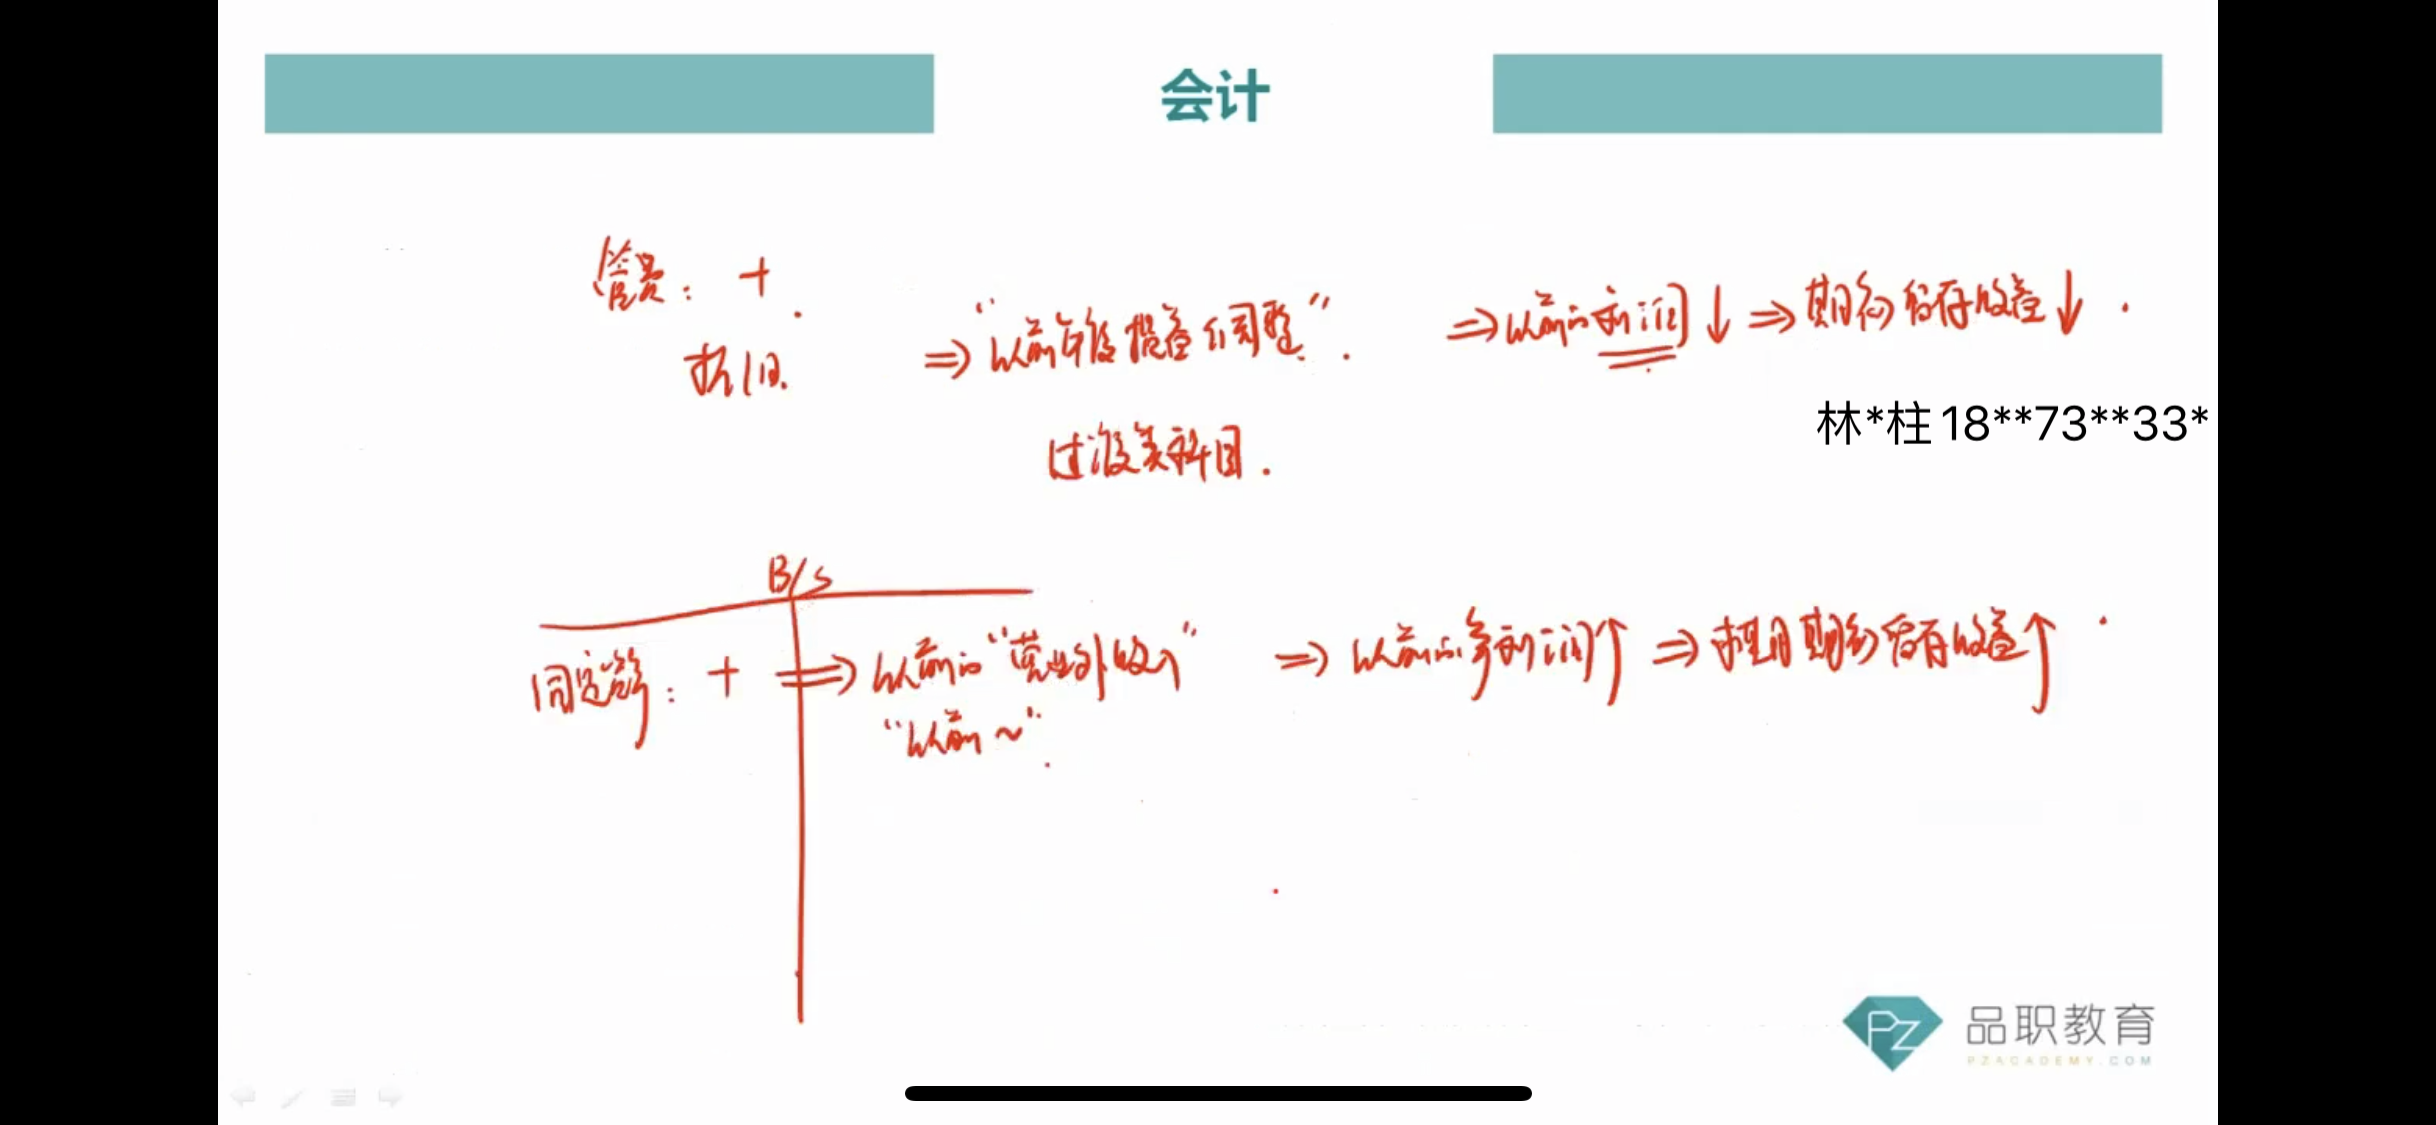 会计
管费：+
⇒"以前年度损益调整". ⇒以前的利润↓⇒期初留存收益↓.
折旧.
林*柱18**73**33*
过渡类科目.
B/S
固定资：+ ⇒以前的"营业外收入" ⇒以前的净利润↑⇒期初留存收益↑.
"以前~".
PZ 品职教育
PZACADEMY.COM